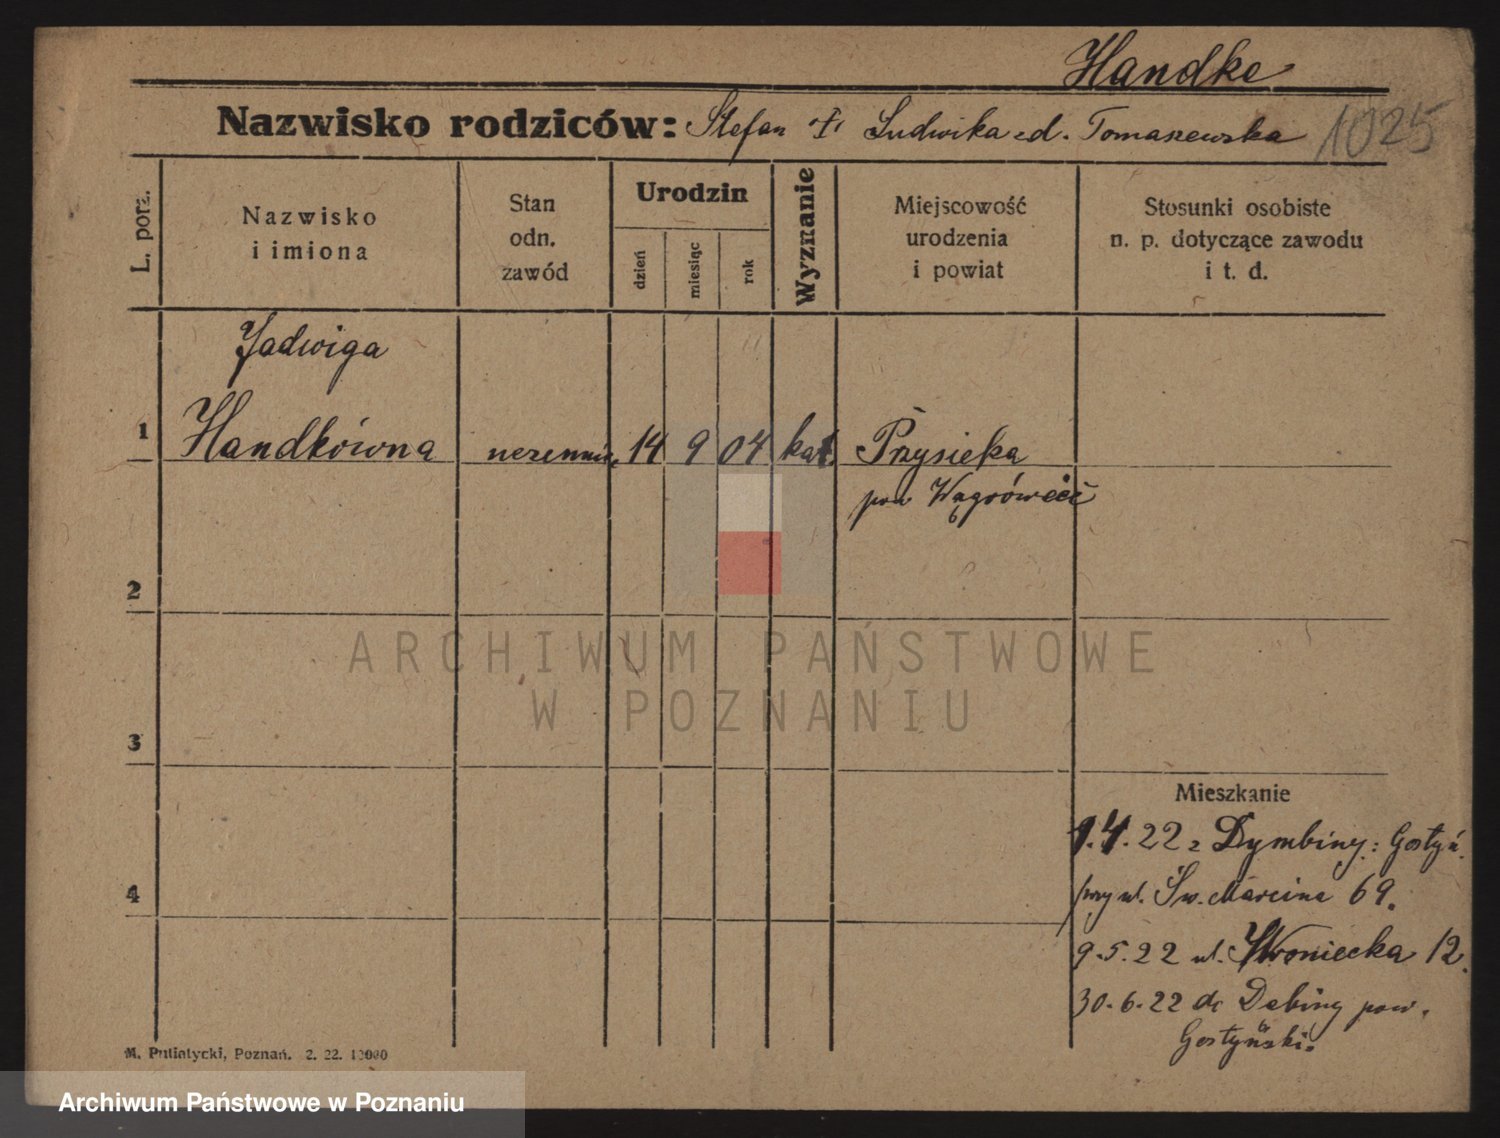 Handke
Nazwisko rodziców: Stefan Ludwika d. Tomaszewska 1025
L. porz.
Nazwisko i imiona
Stan odn. zawód
Urodzin
dzień
miesiąc
rok
Wyznanie
Miejscowość urodzenia i powiat
Stosunki osobiste n. p. dotyczące zawodu i t. d.
Jadwiga
1 Handkówna 14 9 04 kat. Przysieka
pow
2
ARCHIWUM PAŃSTWOWE
W POZNANIU
3
Mieszkanie
1.4.22 z Dymbiny: Gostyń.
4 przy ul. Św. Marcina 69.
9.5.22 ul. Wroniecka 12.
30.6.22 do Debiny pow.
Gostyński.
M. Putiatycki, Poznań. 2. 22. 10000
Archiwum Państwowe w Poznaniu